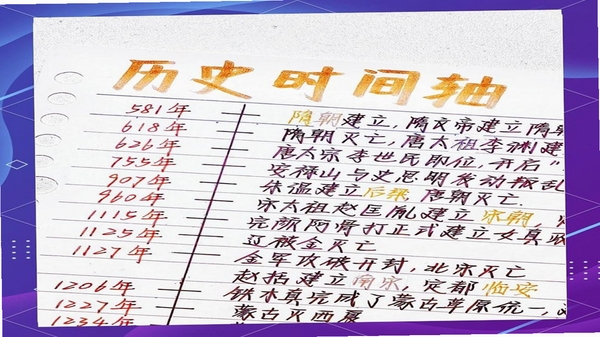 历史时间轴
581年 隋朝建立，隋文帝建立隋朝
618年 隋朝灭亡，唐太祖李渊建
626年 唐太宗李世民即位，开启“
755年 安禄山与史思明发动叛乱
907年 朱温建立后梁，唐朝灭亡.
960年 宋太祖赵匡胤建立宋朝，
1115年 完颜阿骨打正式建立女真政
1125年 辽被金灭亡
1127年 金军攻破开封，北宋灭亡
赵括建立南宋，定都临安
1206年 铁木真完成了蒙古草原统一，
1227年 蒙古灭西夏
1234年